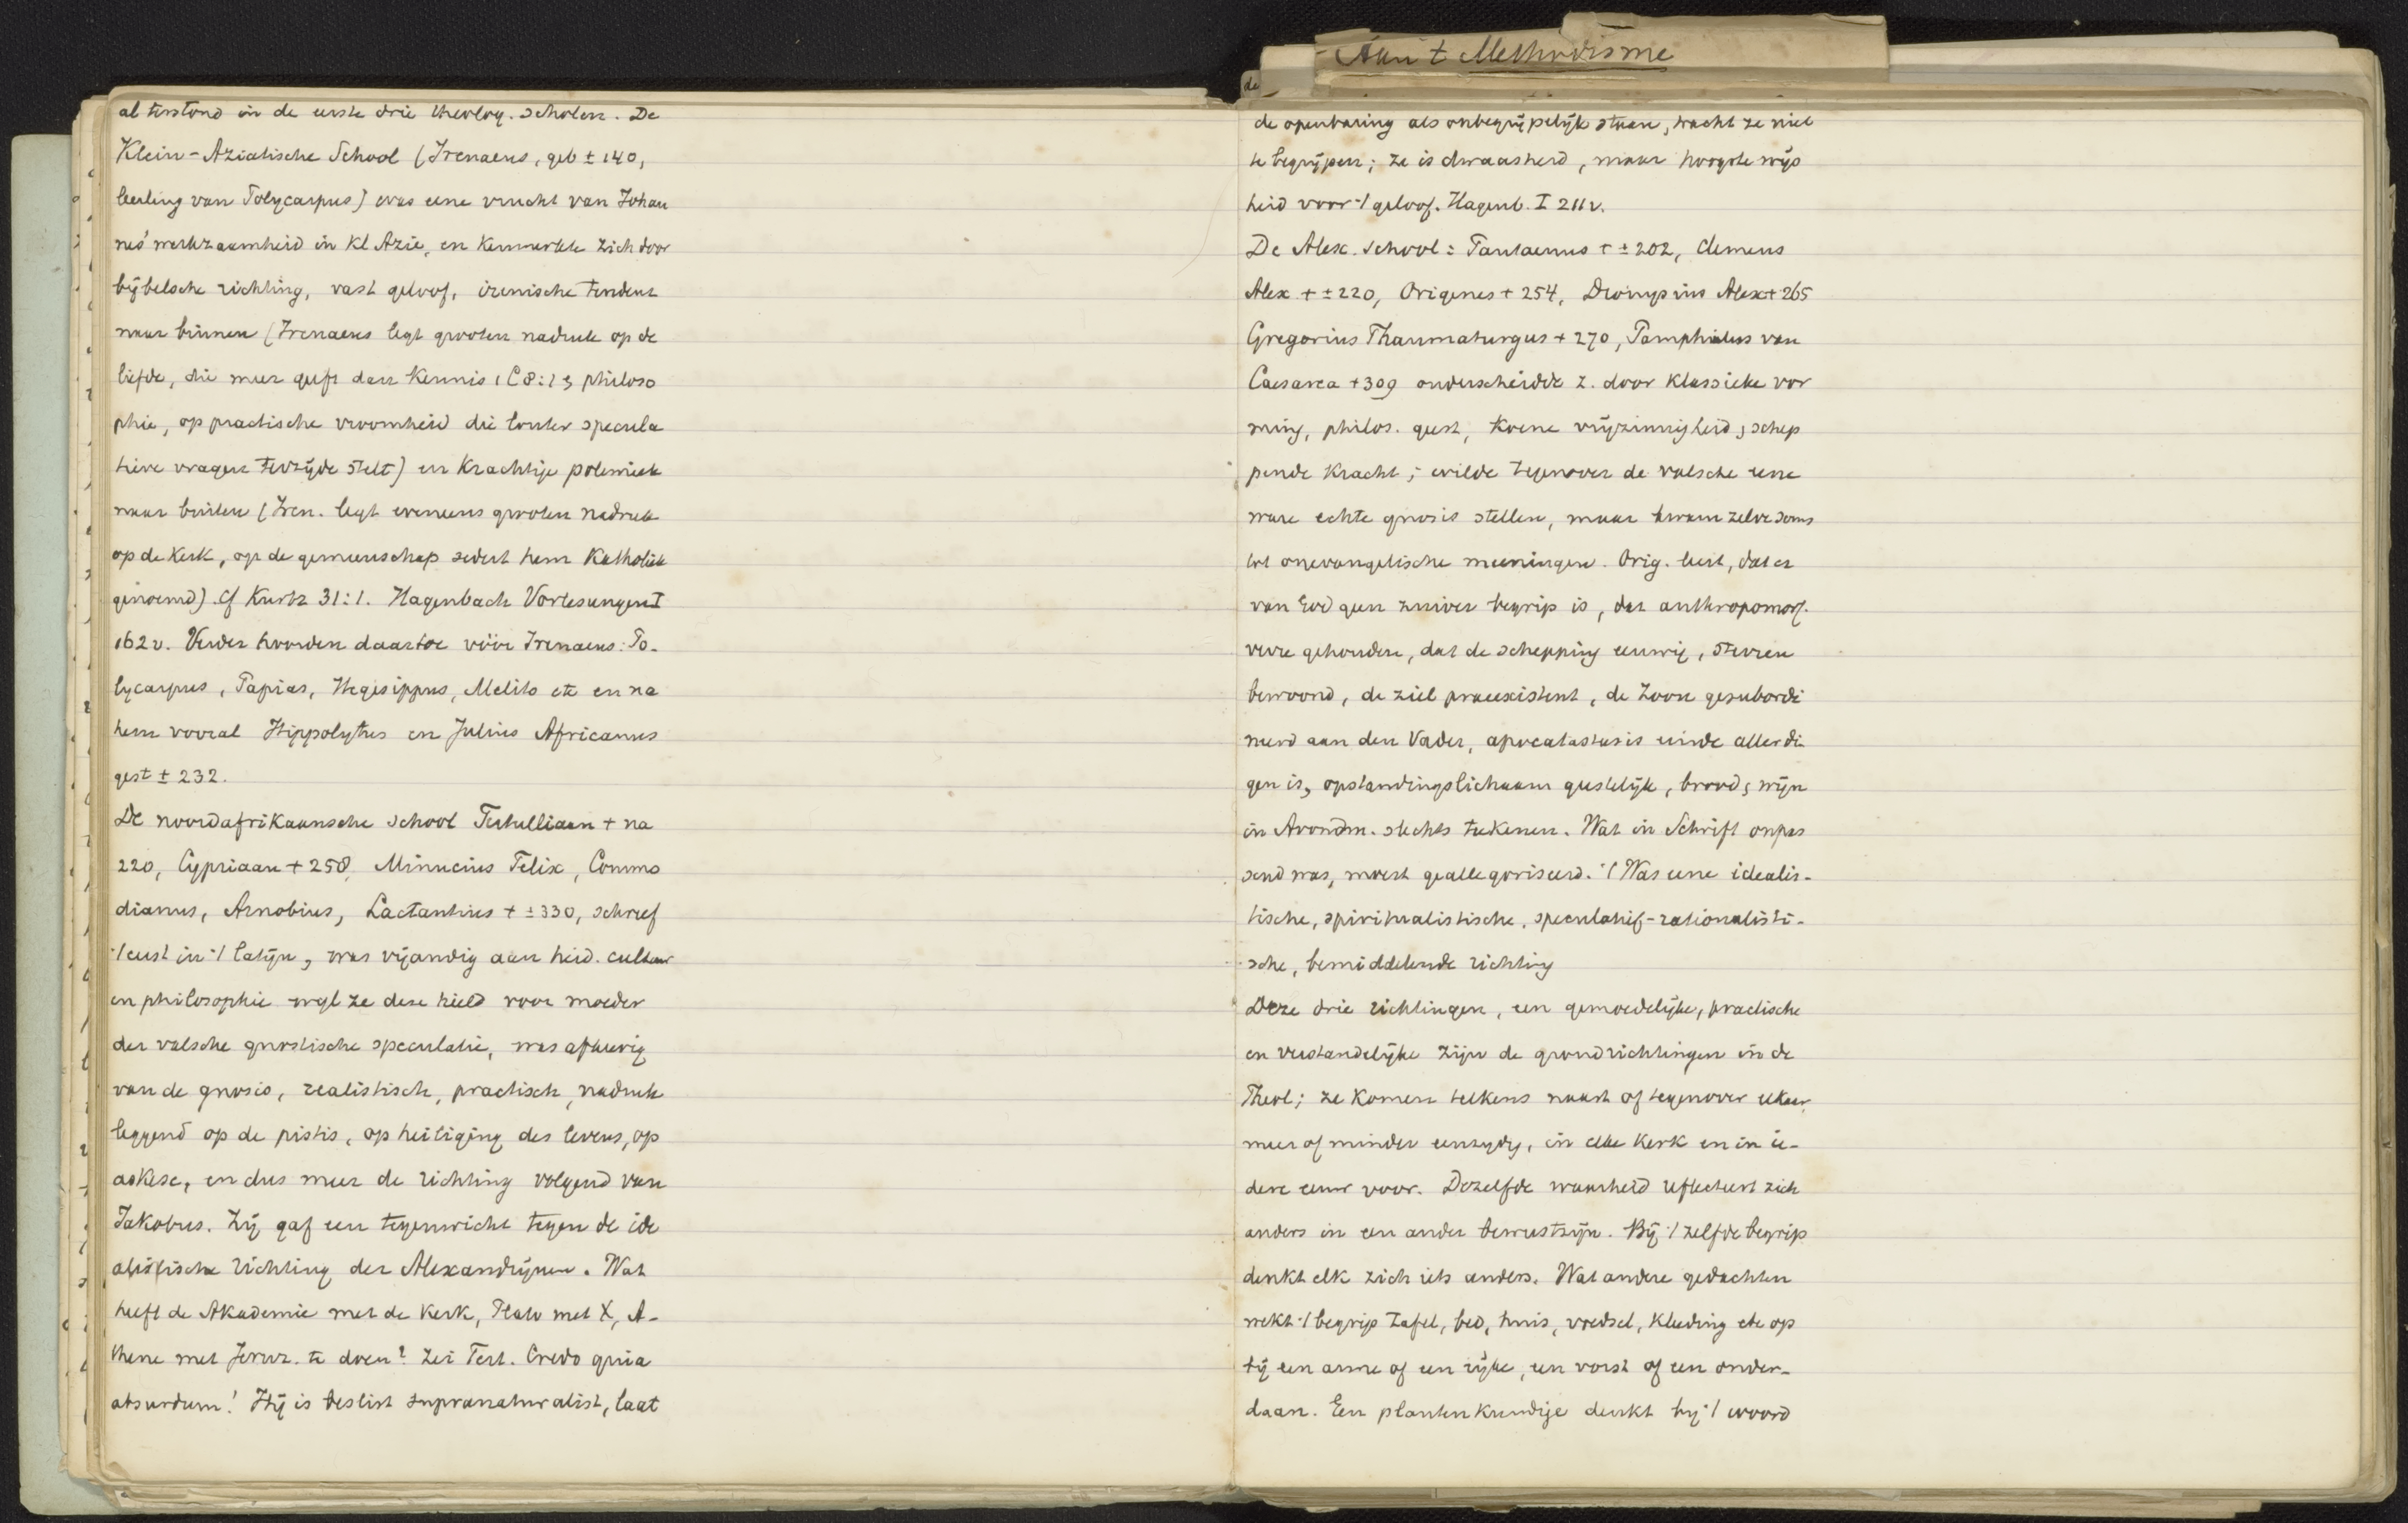 al terstond in de eerste drie theolog. scholen. De
Klein-Aziatische School (Irenaeus, geb ± 140,
leerling van Polycarpus) was eene vrucht van Johan
nes' werkzaamheid in Kl Azie, en kenmerkte zich door
bijbelsche richting, vast geloof, irenische tendenz
naar binnen (Irenaeus legt grooten nadruk op de
liefde, die meer geeft dan kennis 1 C 8:1 & philoso
phie, op practische vroomheid die louter specula
tieve vragen terzijde stelt) en krachtige polemiek
naar buiten (Iren. legt eveneens grooten nadruk
op de kerk, op de gemeenschap sedert hem Katholiek
genoemd). Cf Kurtz 31:1. Hagenbach Vorlesungen I
162 v. Verder hoorden daartoe vóór Irenaeus: Po-
lycarpus, Papias, Hegesippus, Melito etc en na
hem vooral Hippolytus en Julius Africanus
gest ± 232.
De noordafrikaansche school Tertulliaan + na
220, Cypriaan + 258, Minucius Felix, Commo
dianus, Arnobius, Lactantius + ± 330, schreef
't eerst in 't latijn, was vijandig aan heid. cultuur
en philosophie wyl ze deze hield voor moeder
der valsche gnostische speculatie, was afkeerig
van de gnosis, realistisch, practisch, nadruk
leggend op de pistis, op heiliging des levens, op
askese, en dus meer de richting volgend van
Jakobus. Zij gaf een tegenwicht tegen de ide
alistische richting der Alexandrijnen. Wat
heeft de Akademie met de Kerk, Plato met X, A-
thene met Jeruz. te doen? zei Tert. Credo quia
absurdum! Hij is beslist supranaturalist, laat
Aan t Methodisme
de
de openbaring als onbegrijpelijk staan, tracht ze niet
te begrijpen; ze is dwaasheid, maar hoogste wijs
heid voor 't geloof. Hagenb. I 211 v.
De Alex. school: Pantaenus + ± 202, Clemens
Alex + ± 220, Origenes + 254, Dionysius Alex + 265
Gregorius Thaumaturgus + 270, Pamphilus van
Caesarea + 309 onderscheidde z. door klassieke vor
ming, philos. geest, koene vrijzinnigheid, schep
pende kracht; wilde tegenover de valsche eene
ware echte gnosis stellen, maar kwam zelve soms
tot onevangelische meeningen. Orig. leert, dat er
van God geen zuiver begrip is, dat anthropomorf.
verre gehouden, dat de schepping eeuwig, sterren
bewoond, de ziel praeexistent, de Zoon gesubordi
neerd aan den Vader, apocatastasis einde aller din
gen is, opstandingslichaam geestelijk, brood & wijn
in Avondm. slechts teekenen. Wat in Schrift onpas
send was, moest geallegoriseerd. 't Was eene idealis-
tische, spiritualistische, speculatief-rationalisti-
sche, bemiddelende richting
Deze drie richtingen, een gemoedelijke, practische
en verstandelijke zijn de grondrichtingen in de
Theol; ze komen telkens naast of tegenover elkaar,
meer of minder eenzydig, in elke kerk en in ie-
dere eeuw voor. Dezelfde waarheid reflecteert zich
anders in een ander bewustzijn. Bij 't zelfde begrip
denkt elk zich iets anders. Wat andere gedachten
wekt 't begrip tafel, bed, huis, voedsel, kleeding etc op
bij een arme of een rijke, een vorst of een onder-
daan. Een plantenkundige denkt bij 't woord